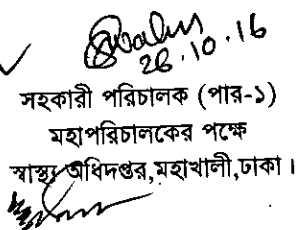 26.10.16
সহকারী পরিচালক (পার-১)
মহাপরিচালকের পক্ষে
স্বাস্থ্য অধিদপ্তর,মহাখালী,ঢাকা।